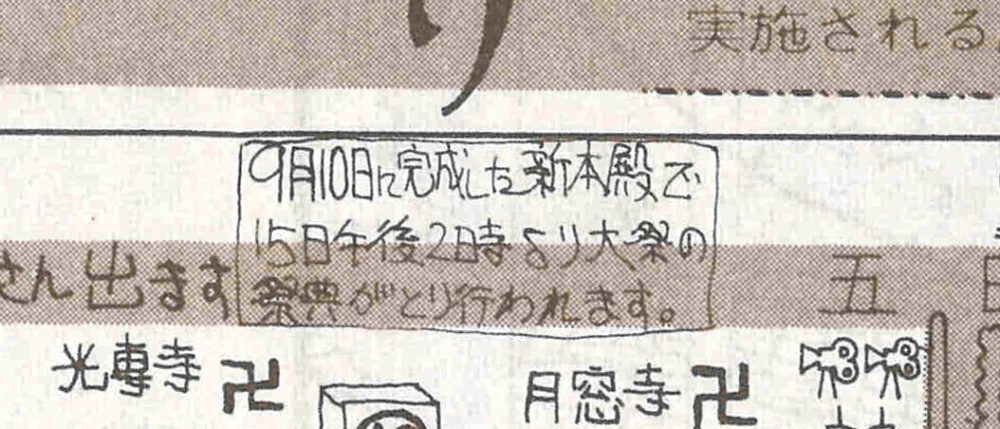 り
実施される
9月10日に完成した新本殿で
15日午後2時より大祭の
祭典がとり行われます。
さん出ます
五
光專寺
卍
月窓寺
卍